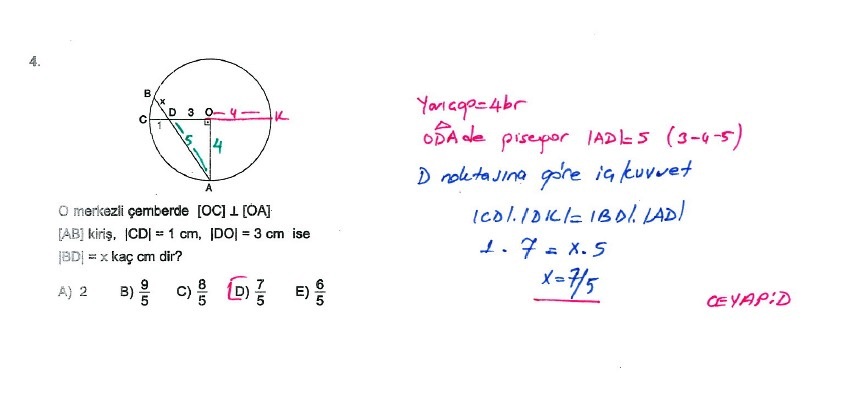 4.
B
x
D 3 O 4 K
C 1
5 4
A
O merkezli çemberde [OC] ⊥ [OA]
[AB] kiriş, |CD| = 1 cm, |DO| = 3 cm ise
|BD| = x kaç cm dir?
A) 2 B) 9/5 C) 8/5 D) 7/5 E) 6/5
Yarıçap=4br
ODA de pisagor |AD|=5 (3-4-5)
D noktasına göre iç kuvvet
|CD|.|DK|=|BD|.|AD|
1.7=x.5
x=7/5
CEVAP:D